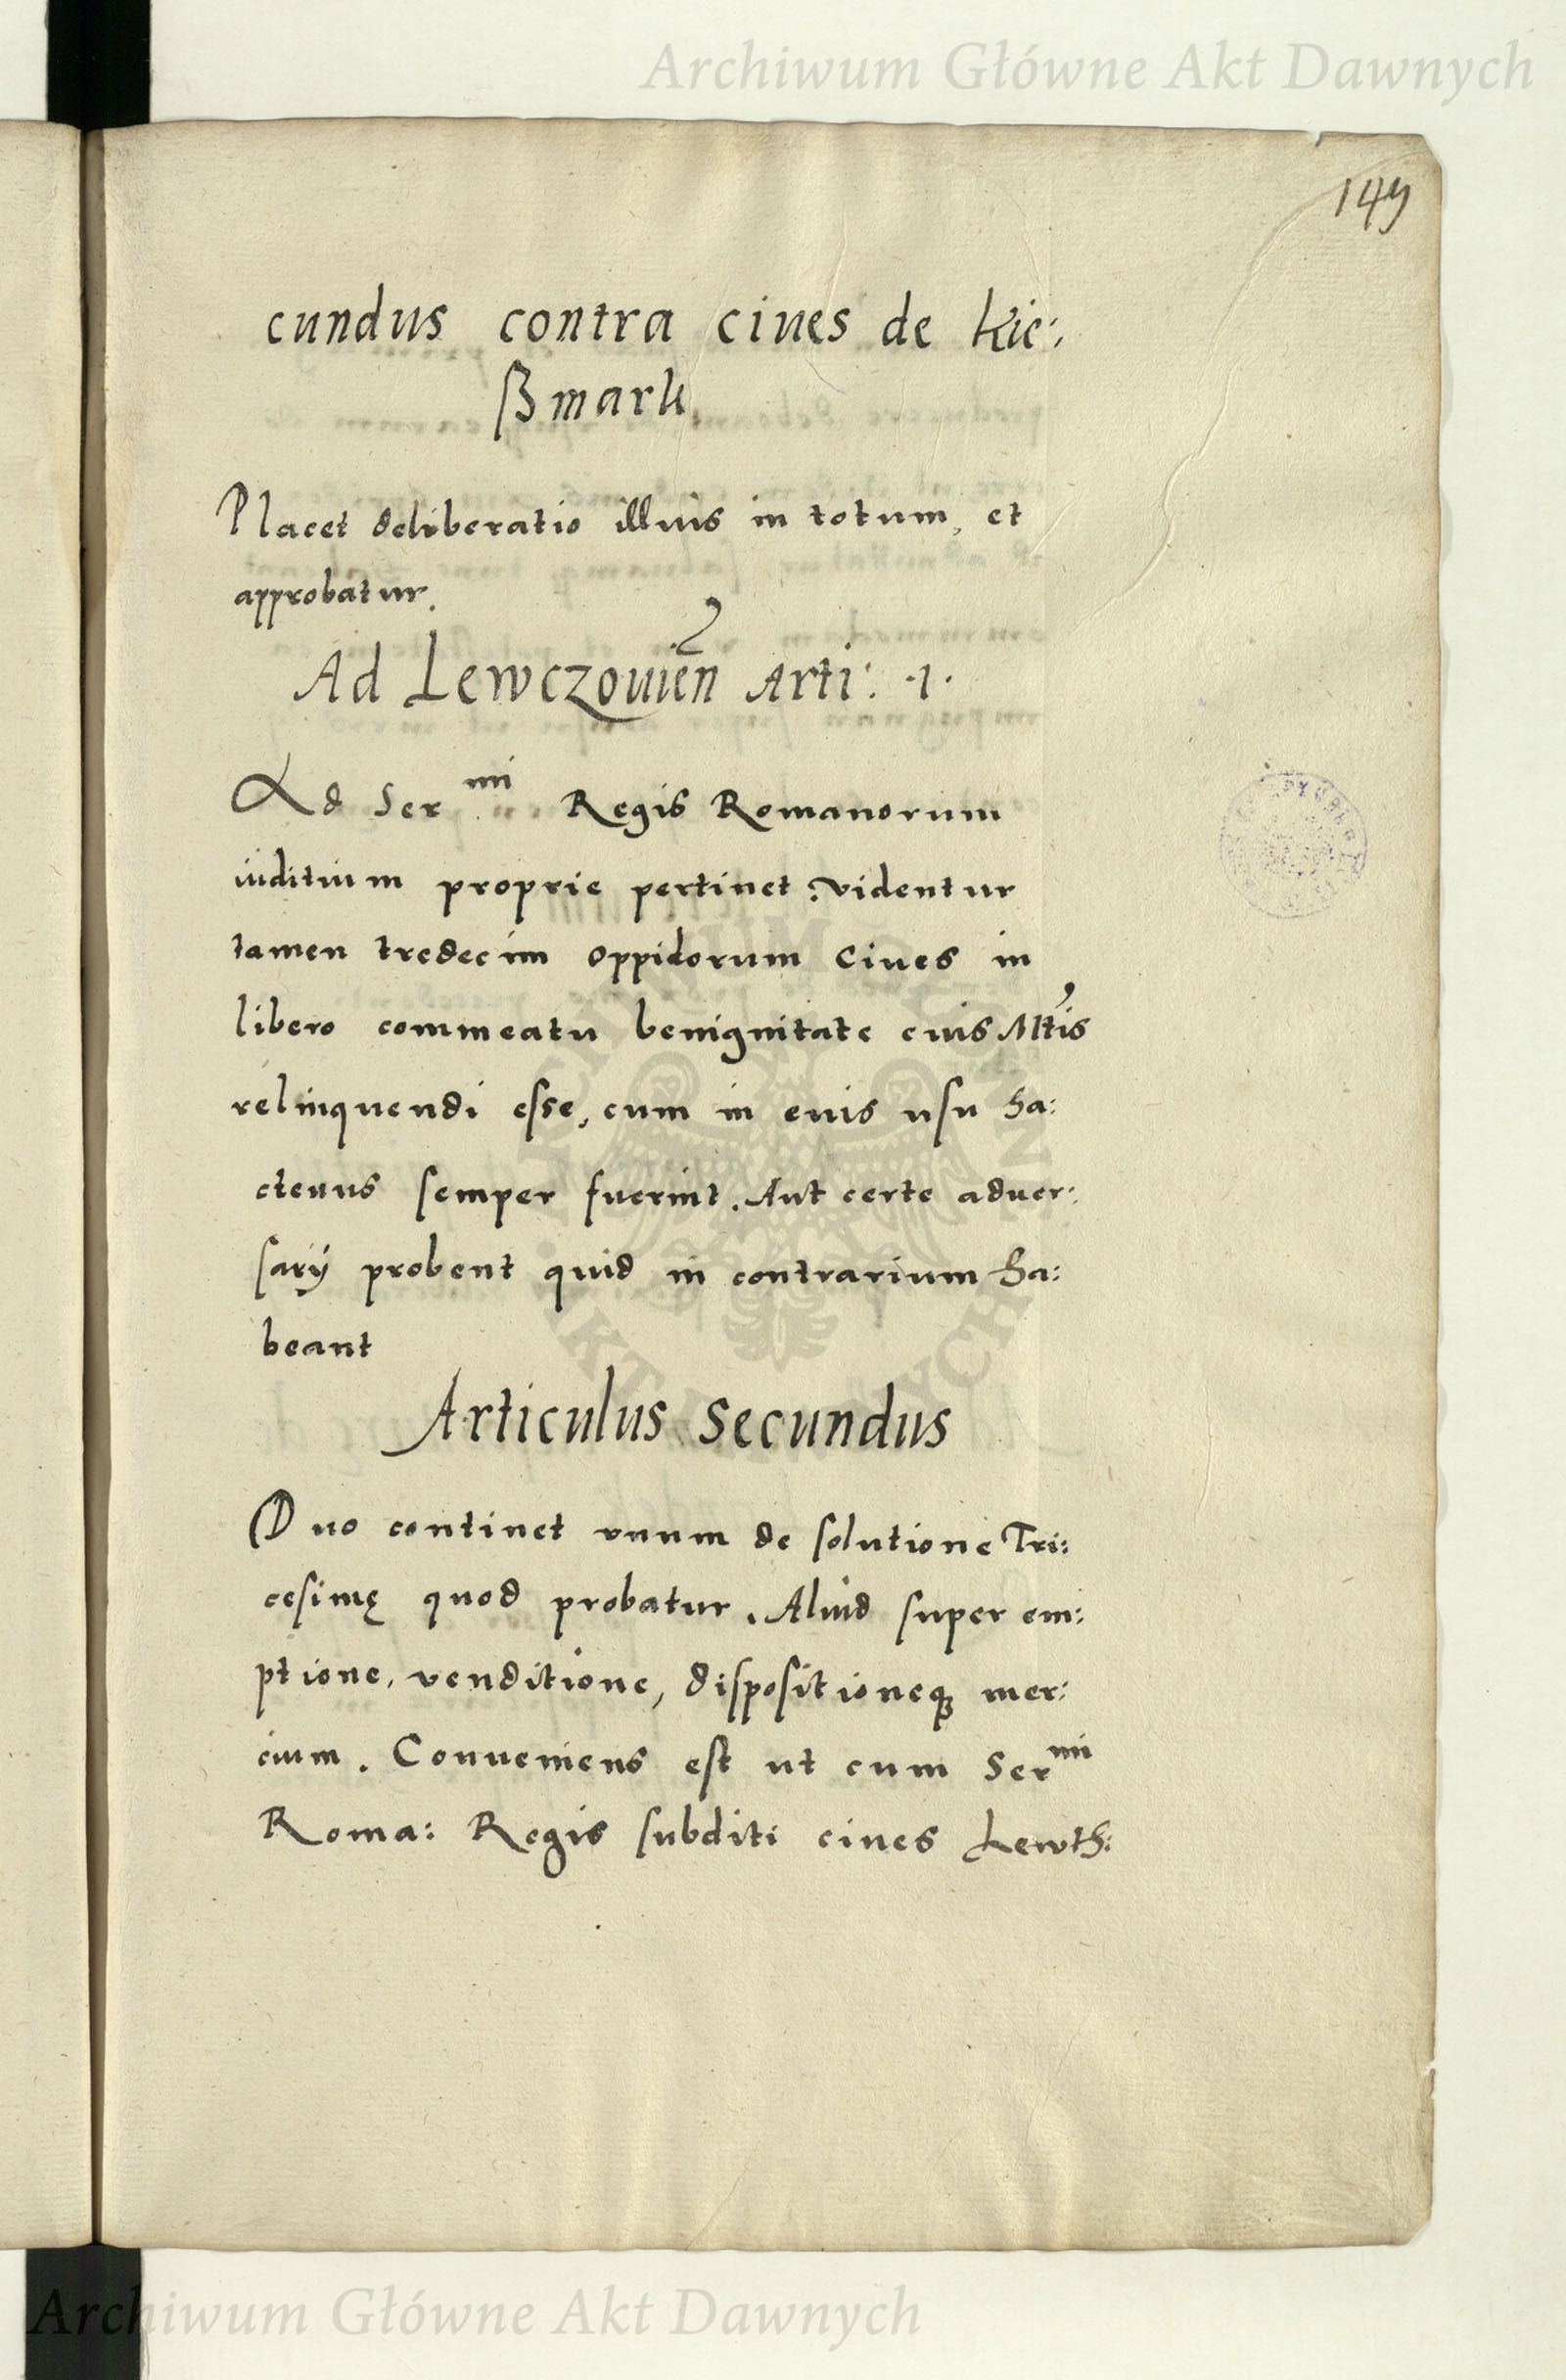 Archiwum Główne Akt Dawnych
149
cundus contra ciues de Kie:
ßmark
Placet deliberatio illius in totum, et
approbatur.
Ad Lewczouien̄ Arti: ·1·
Ad Ser^mi Regis Romanorum
iuditium proprie pertinet. videntur
tamen tredecim oppidorum Ciues in
libero commeatu benignitate euis Mtis
relinquendi esse, cum in euis usu ha:
ctenus semper fuerint. Aut certe aduer:
sarÿ probent quid in contrarium ha:
beant
Articulus Secundus
Duo continet vnum de solutione Tri:
cesimę quod probatur. Aliud super em:
ptione, venditione, dispositioneq₃ mer:
cium. Conueniens est ut cum Ser^mi
Roma: Regis subditi ciues Lewth:
Archiwum Główne Akt Dawnych